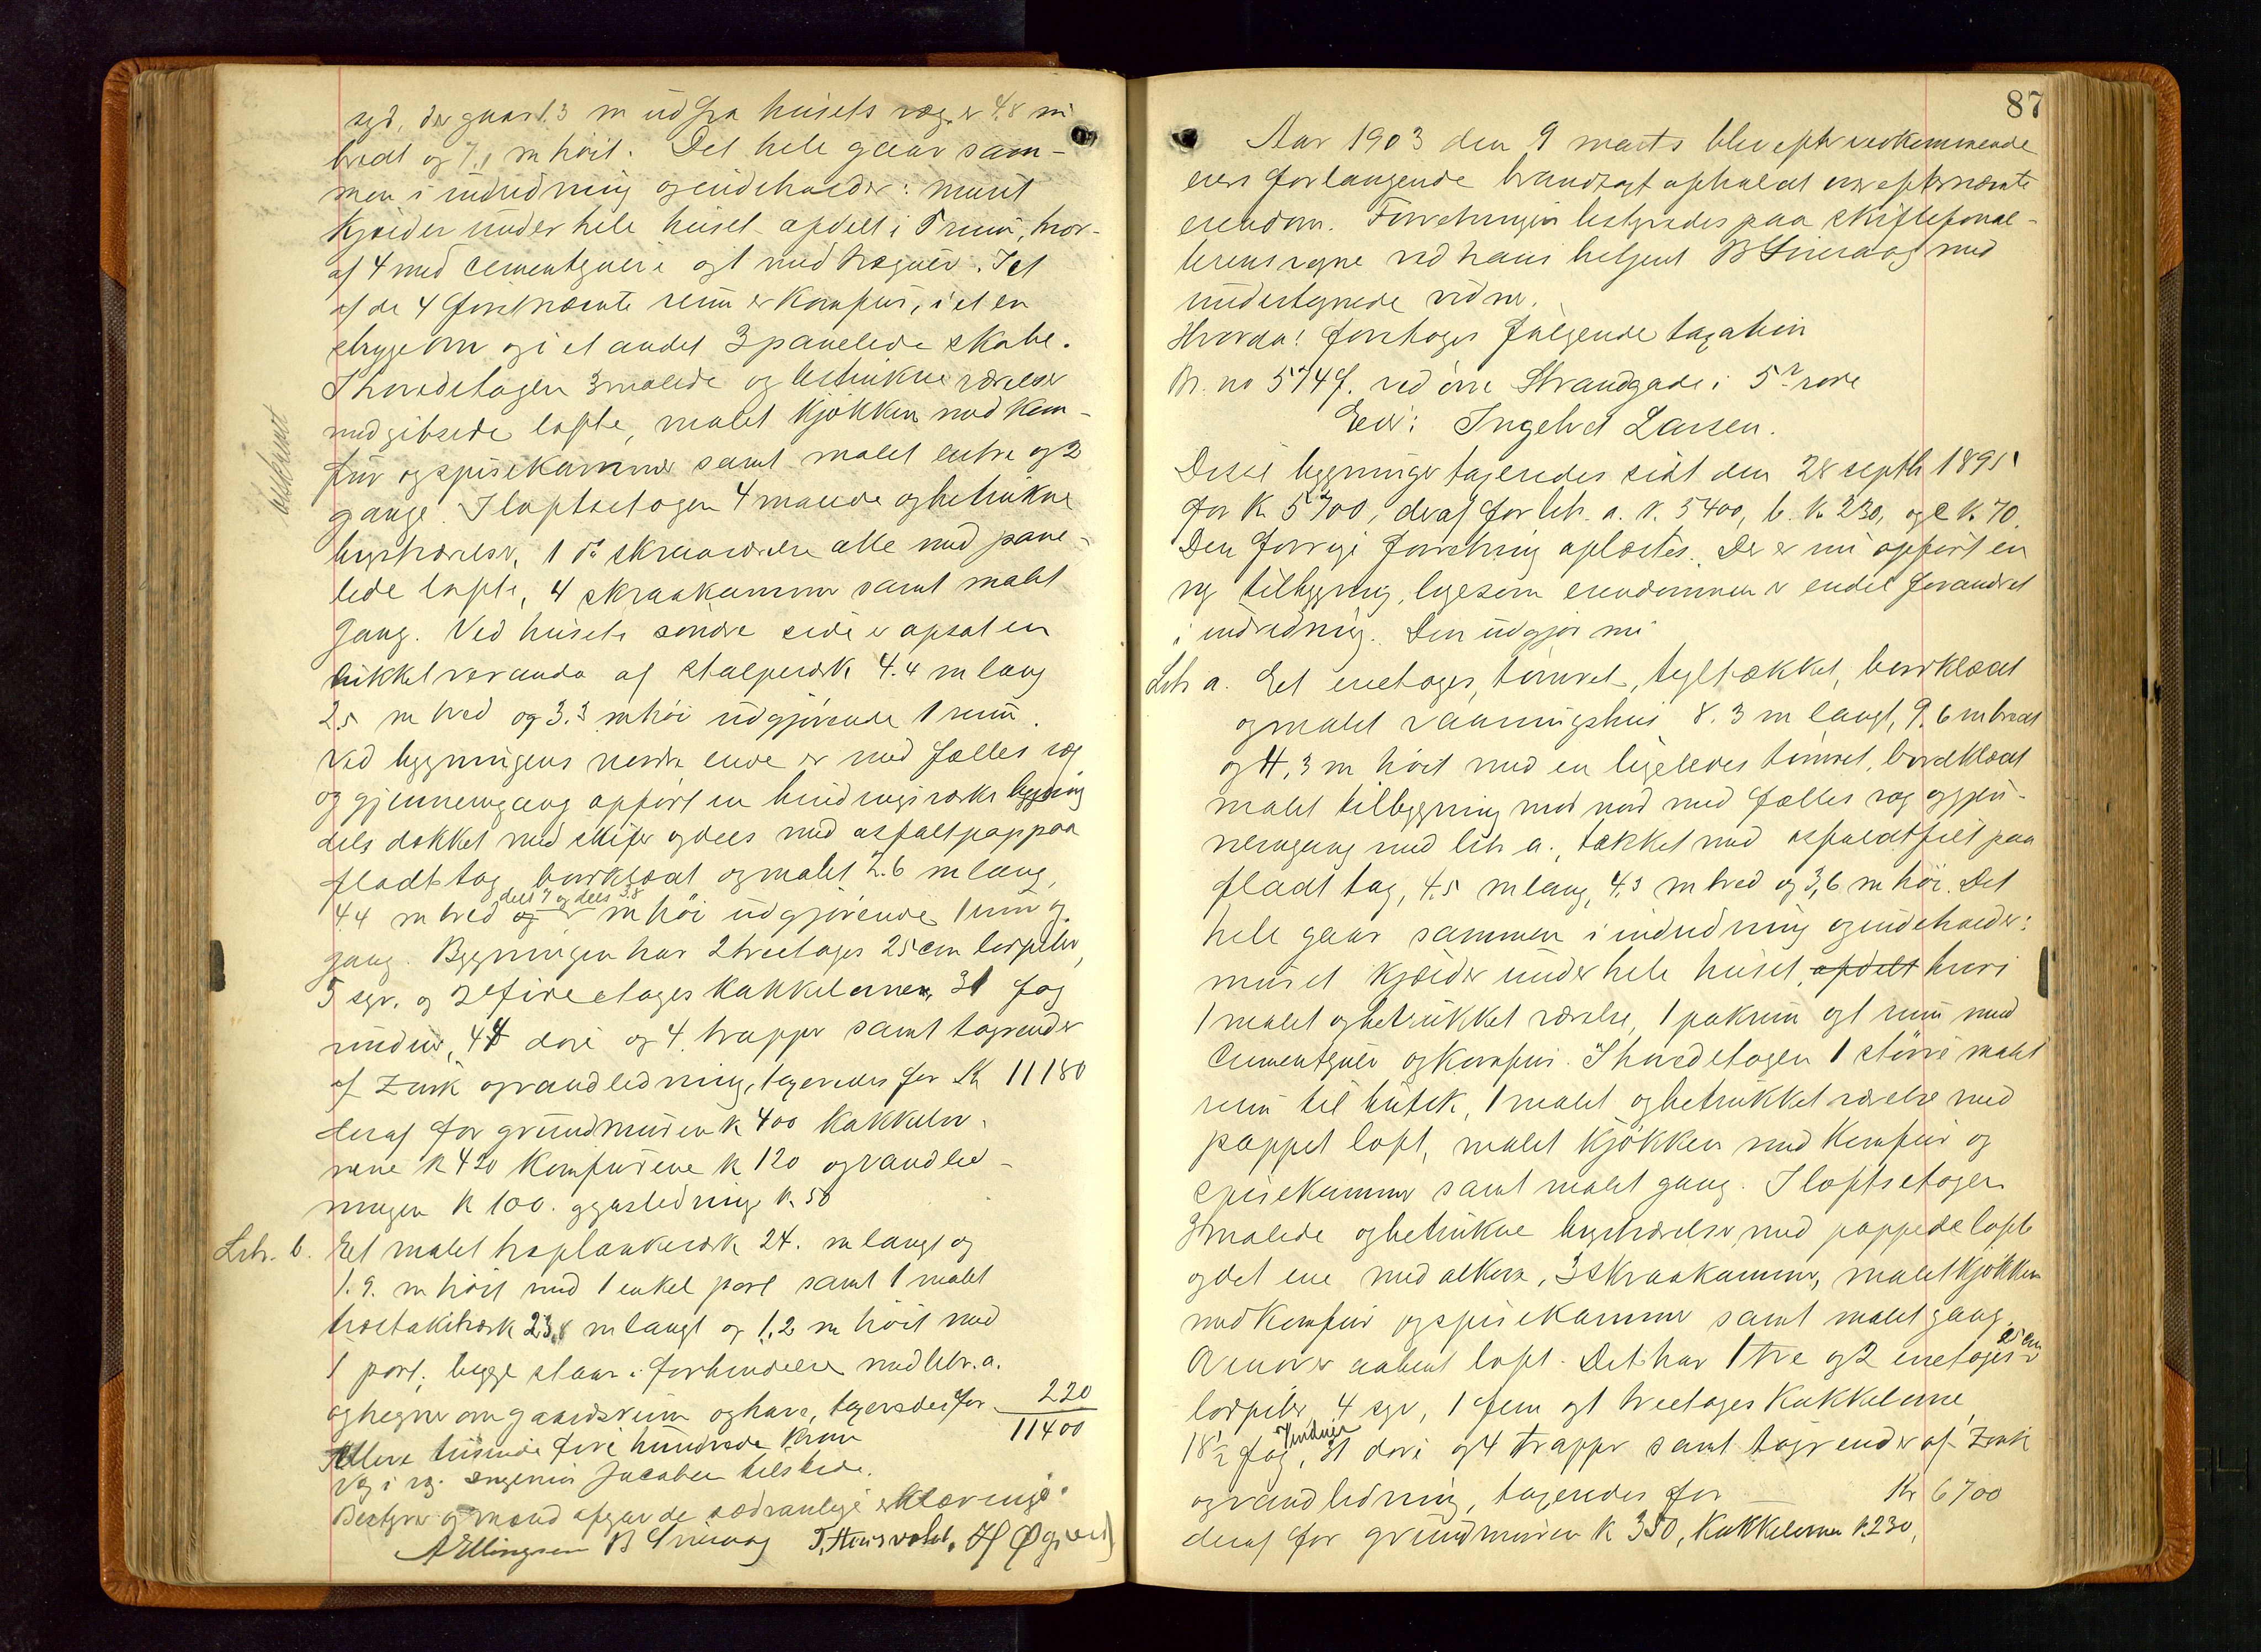 syd, der gaar 1.3 m ud fra husets væg er 4.8 m
bredt og 7.1 m høit. Det hele gaar sam-
men i indredning og indeholder: muret
kjælder under hele huset afdelt i 5 rum, hvor-
af 4 med cementgulv og 1 med trægulv. I et
af de 4 førstnævnte rum er komfur, i et en
strygeovn og i et andet 3 panelede skabe.
I hovedetagen 3 malede og betrukne værelser
med gibsede lofte, malet kjøkken med kom-
fur og spisekammer samt malet entre og 2
gange. I loftsetagen 4 malede og betrukne
kvistværelser, 1 do skraaværelse alle med pane-
lede lofte, 4 skraakammer samt malet
gang. Ved husets søndre side er opsat en
lukket veranda af stolpeværk 4.4 m lang
2.5 m bred og 3.3 m høi udgjørende 1 rum.
Ved bygningens nordre ende er med fælles væg
og gjennemgang opført en bindingsværks bygning
dels dækket med skifer og dels med asfaltpap paa
fladt tag bordklædt og malet 2.6 m lang,
dels 7 og dels 3.8
4.4 m bred og m høi udgjørende 1 rum og
gang. Bygningen har 2 treetages 25 cm lødpiber,
5 egr. og 2 fireetages kakkelovner, 31 fag
vinduer, 44 døre og 4 trapper samt tagrender
af zink og vandledning, taxeredes for Kr 11180
deraf for grundmuren k 400 kakkelov-
nene k 420 komfurene k 120 og vandled-
ningen k 100. og gasledning k. 50
Litr. b. Et malet træplankeværk 24. m langt og
1.9. m høit med 1 enkel port samt 1 malet
træstakitværk 23,8 m langt og 1,2 m høit med
1 port, begge staar i forbindelse med litr. a.
og hegner om gaardsrum og have, taxeredes for 220
11400
Elleve tusinde fire hundrede kroner
Ingeniør Jacobsen tilstede.
Bestyrer og mænd afgav de sædvanlige erklæringer.
A Ellingsen B
abskrevet
87
Aar 1903 den 9 marts blev efter vedkommende
eiers forlangende brandtaxt afholdt over efternævnte
eiendom. Forretningen bestyredes paa skiftefoval-
terens vegne ved hans betjent B med
undertegnede vidner.
Hvorda! foretoges følgende taxation
Br. no 574 f. ved øvre Strandgade i 5te rode
Eier: Ingebret Larsen.
Disse bygninger taxeredes sidst den 28 septb 1895
for K 5700, deraf for litr. a. k. 5400, b. k. 230, og c k. 70.
Den forrige forretning oplæstes. Der er nu opført en
ny tilbygning, ligesom eiendommen er endel forandret
i indredning. Den udgjør nu
Litr a. Et enetages, tømret, tegltækket, bordklædt
og malet vaaningshus 8.3 m langt, 9.6 m bredt
og 4,3 m høit med en ligeledes tømret, bordklædt
malet tilbygning mod nord med fælles væg og gjen-
nemgang med litr a., tækket med asfaldtfilt paa
fladt tag, 4.5 m lang, 4.3 m bred og 3,6 m høi. Det
hele gaar sammen i indredning og indeholder:
muret kjælder under hele huset, afdelt hvori
1 malet og betrukket værelse, 1 pakrum og 1 rum med
cementgulv og komfur. I hovedetagen 1 større malet
rum til butik, 1 malet og betrukket værelse med
pappet loft, malet kjøkken med komfur og
spisekammer samt malet gang. I loftsetagen
3 malede og betrukne kvistværelser med pappede lofte
og det ene med alkove, 3 skraakammer, malet kjøkken
med komfur og spisekammer samt malet gang.
Ovenover aabent loft. Det har 1 tre og 2 enetages 25 cm
lødpiber, 4 egr, 1 fem og 1 treetages kakkelovne,
18½ fag vinduer, 31 døre og 4 trapper samt tagrender af zink
og vandledning, taxeredes for Kr 6700
deraf for grundmuren k 350, kakkelovne k. 230,